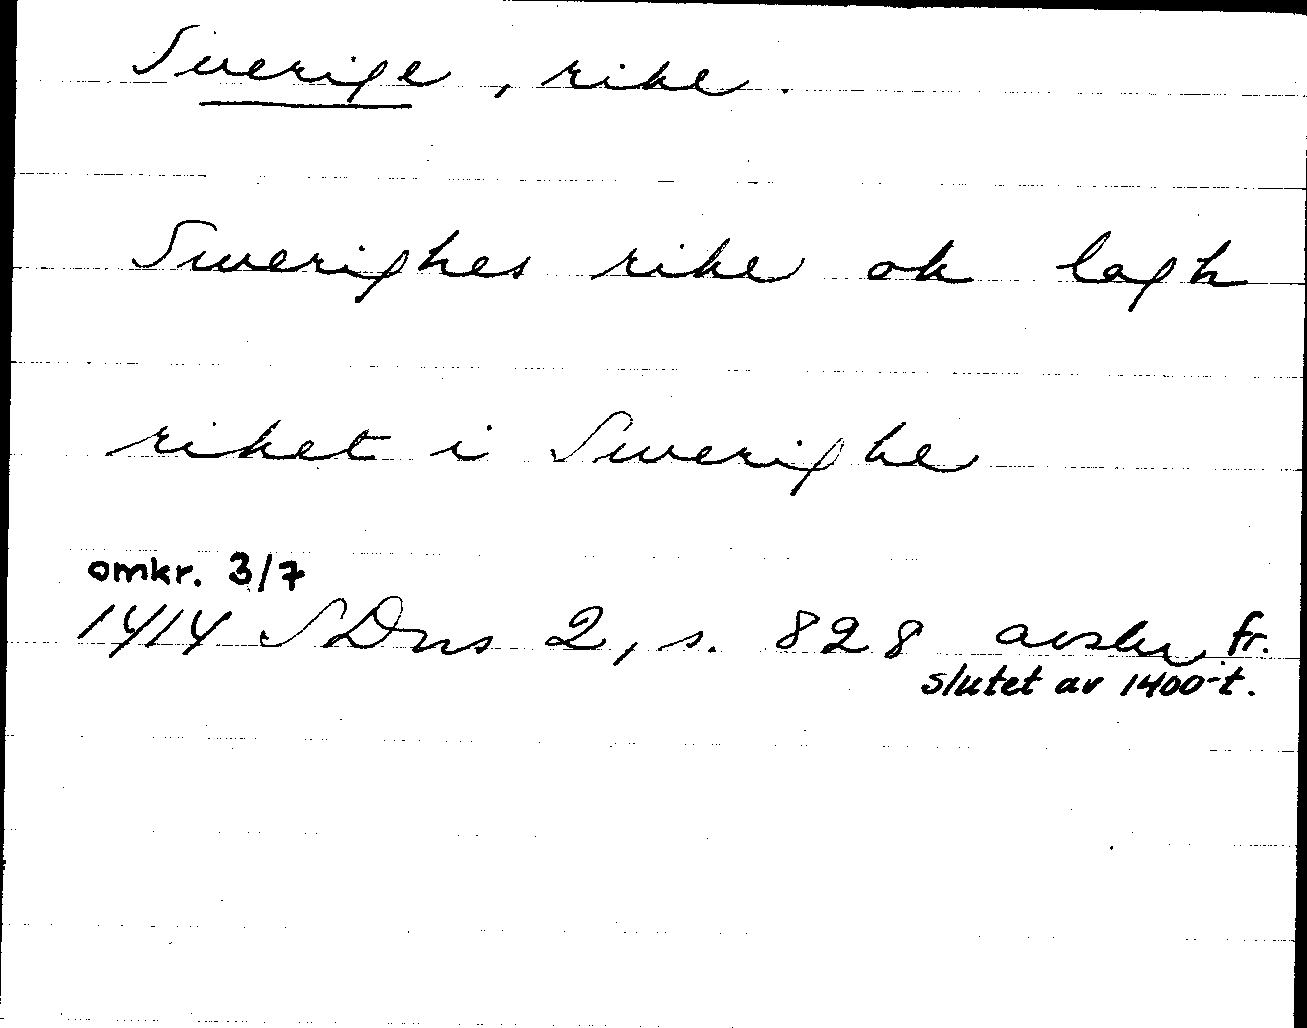 Sverige, rike.
Swerighes rike ok lagh
riket i Swerighe
omkr. 3/7
1414 SDns 2, s. 828 avskr fr.
slutet av 1400-t.